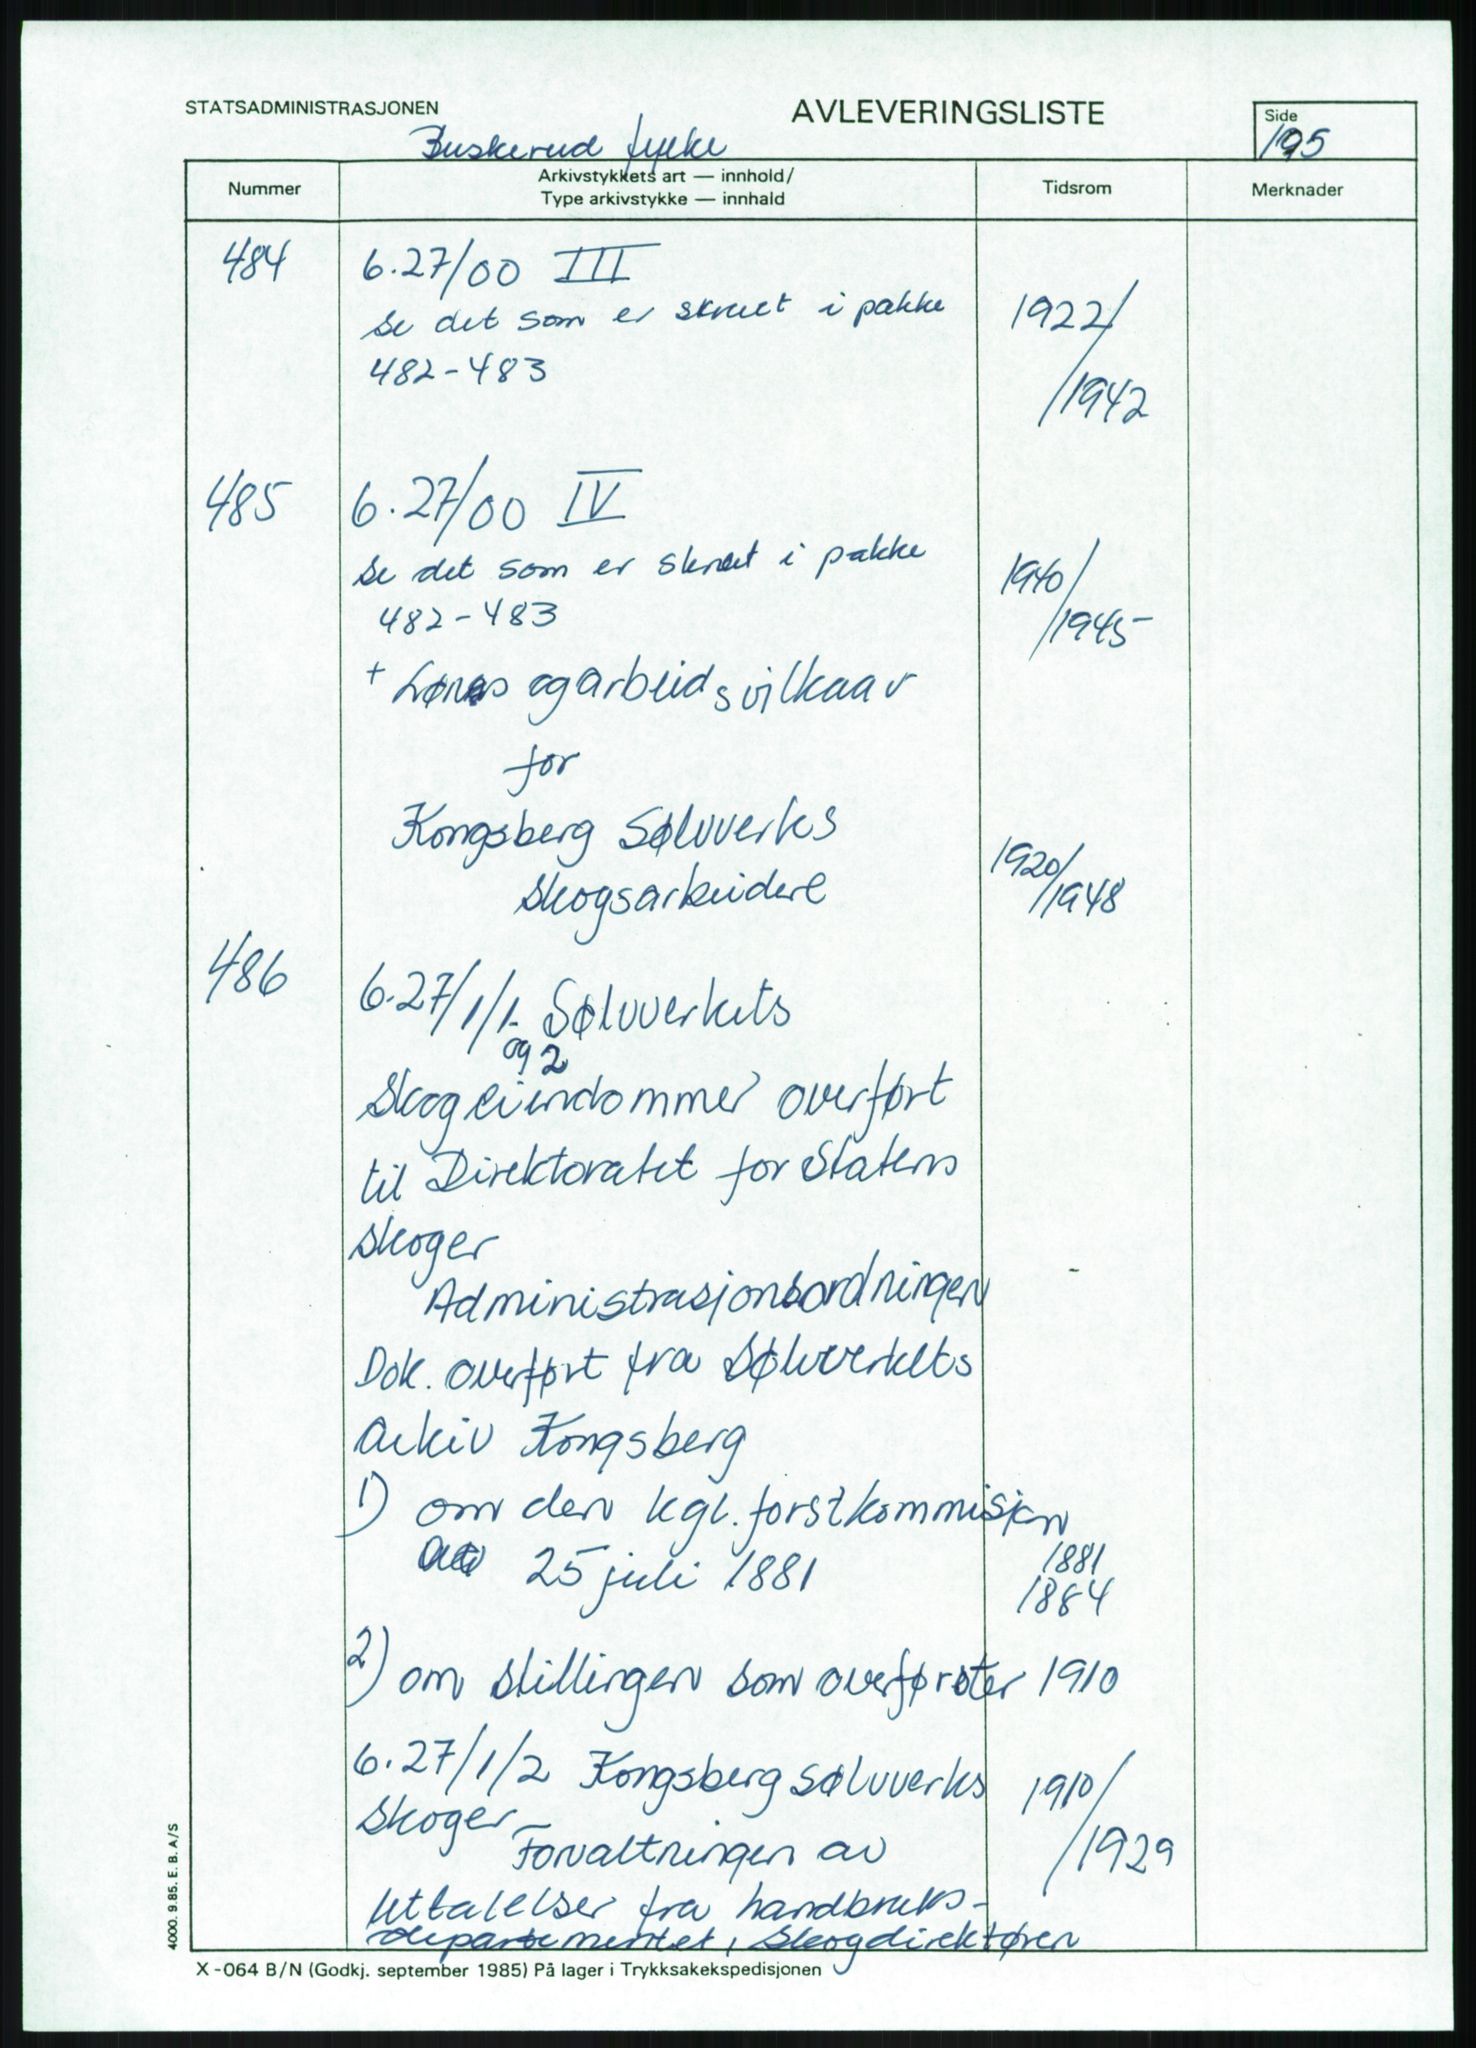 STATSADMINISTRASJONEN
AVLEVERINGSLISTE
Side
195
Buskerud fylke
Nummer
Arkivstykkets art — innhold/
Type arkivstykke — innhald
Tidsrom
Merknader
484
6.27/00 III
Se det som er skrevet i pakke
482-483
1922/
/1942
485
6.27/00 IV
Se det som er skrevet i pakke
482-483
1940/
/1945
+ Lønns og arbeidsvilkaar
for
Kongsberg Sølvverks
Skogsarbeidere
1920/
/1948
486
6.27/1/1. Sølvverkets
og 2
Skogeiendommer overført
til Direktoratet for Statens
Skoger
Administrasjonsordningen
Dok. overført fra Sølvverkets
Arkiv Kongsberg
1) om den kgl. forstkommisjon
av 25 juli 1881
1881
1884
2) om stillingen som overførster 1910
6.27/1/2 Kongsberg Sølvverks
Skoger
1910/
/1929
Forvaltningen av
Uttalelser fra landbruks-
departementet, Skogdirektøren
4000. 9.85. E. B. A/S
X-064 B/N (Godkj. september 1985) På lager i Trykksakekspedisjonen